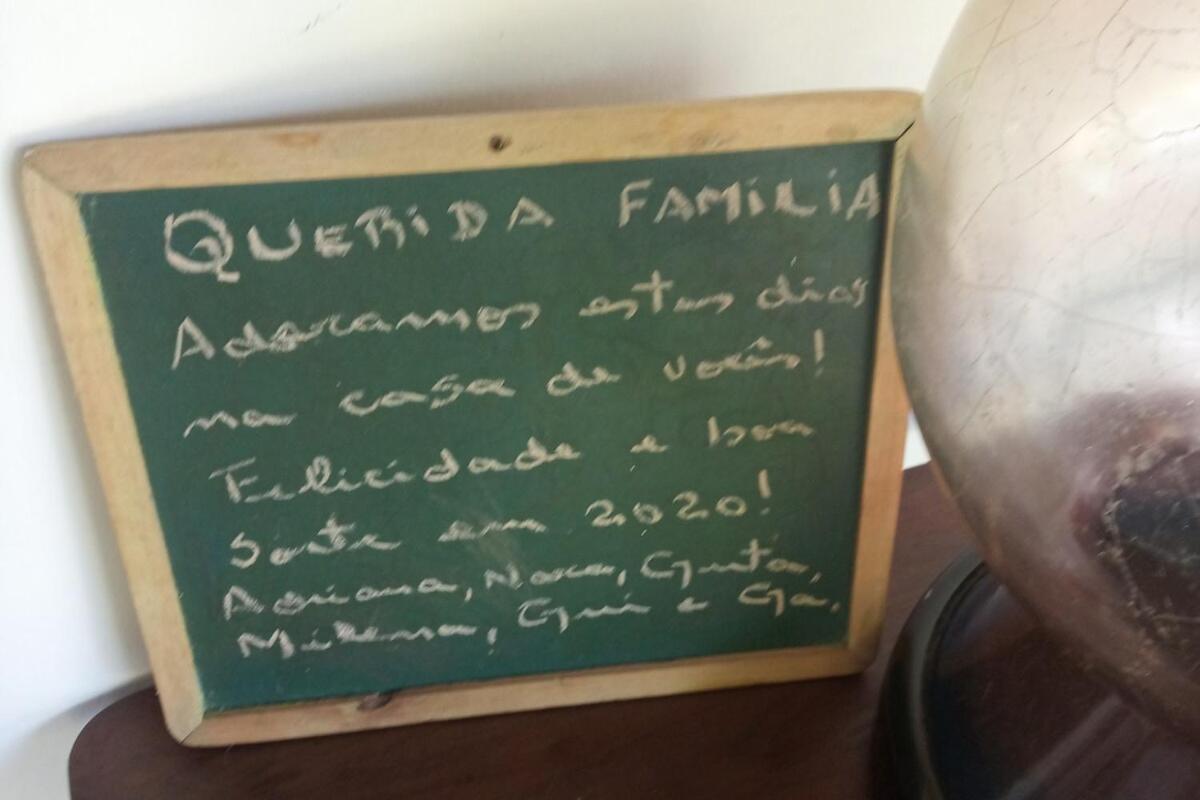 QUERIDA FAMILIA
Adoramos estes dias
na casa de vocês!
Felicidade e boa
sorte em 2020!
Adriana, Nara, Guita,
Milena, Gui e Ga.